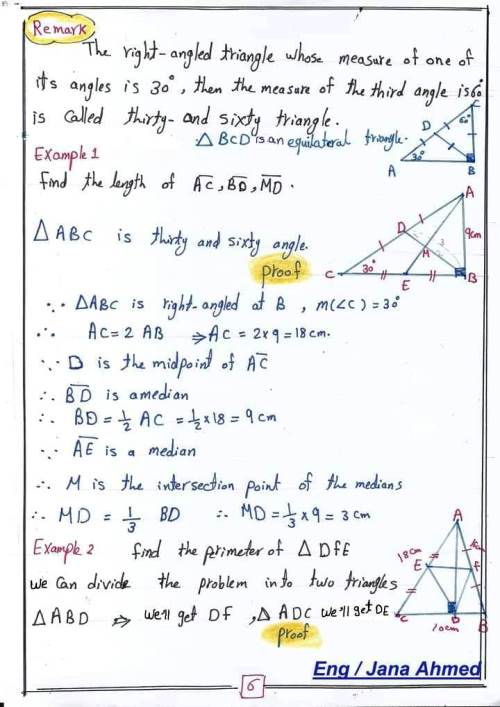 Remark
The right-angled triangle whose measure of one of
its angles is 30°, then the measure of the third angle is 60°
is called thirty-and sixty triangle.
△ BCD is an equilateral triangle.
C
60°
D
30°
A
B
Example 1
find the length of AC, BD, MD.
A
D
9cm
M
3
30°
C
E
B
△ ABC is thirty and sixty angle.
proof
∵ △ABC is right-angled at B, m(∠C) = 30°
∴ AC = 2 AB ⇒ AC = 2×9 = 18 cm.
∵ D is the midpoint of AC
∴ BD is a median
∴ BD = 1/2 AC = 1/2 × 18 = 9 cm
∵ AE is a median
∴ M is the intersection point of the medians
∴ MD = 1/3 BD ∴ MD = 1/3 × 9 = 3 cm
Example 2 find the perimeter of △ DFE
we can divide the problem in to two triangles
△ ABD ⇒ we'll get DF, △ ADC we'll get DE
proof
A
18cm
E
F
C
D
B
10cm
Eng / Jana Ahmed
6